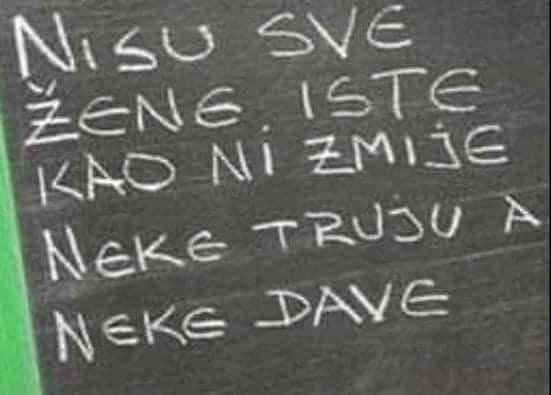 NiSU SVE
ŽENE ISTE
KAO Ni ZMIJE
NEKE TRUJU A
NEKE DAVE